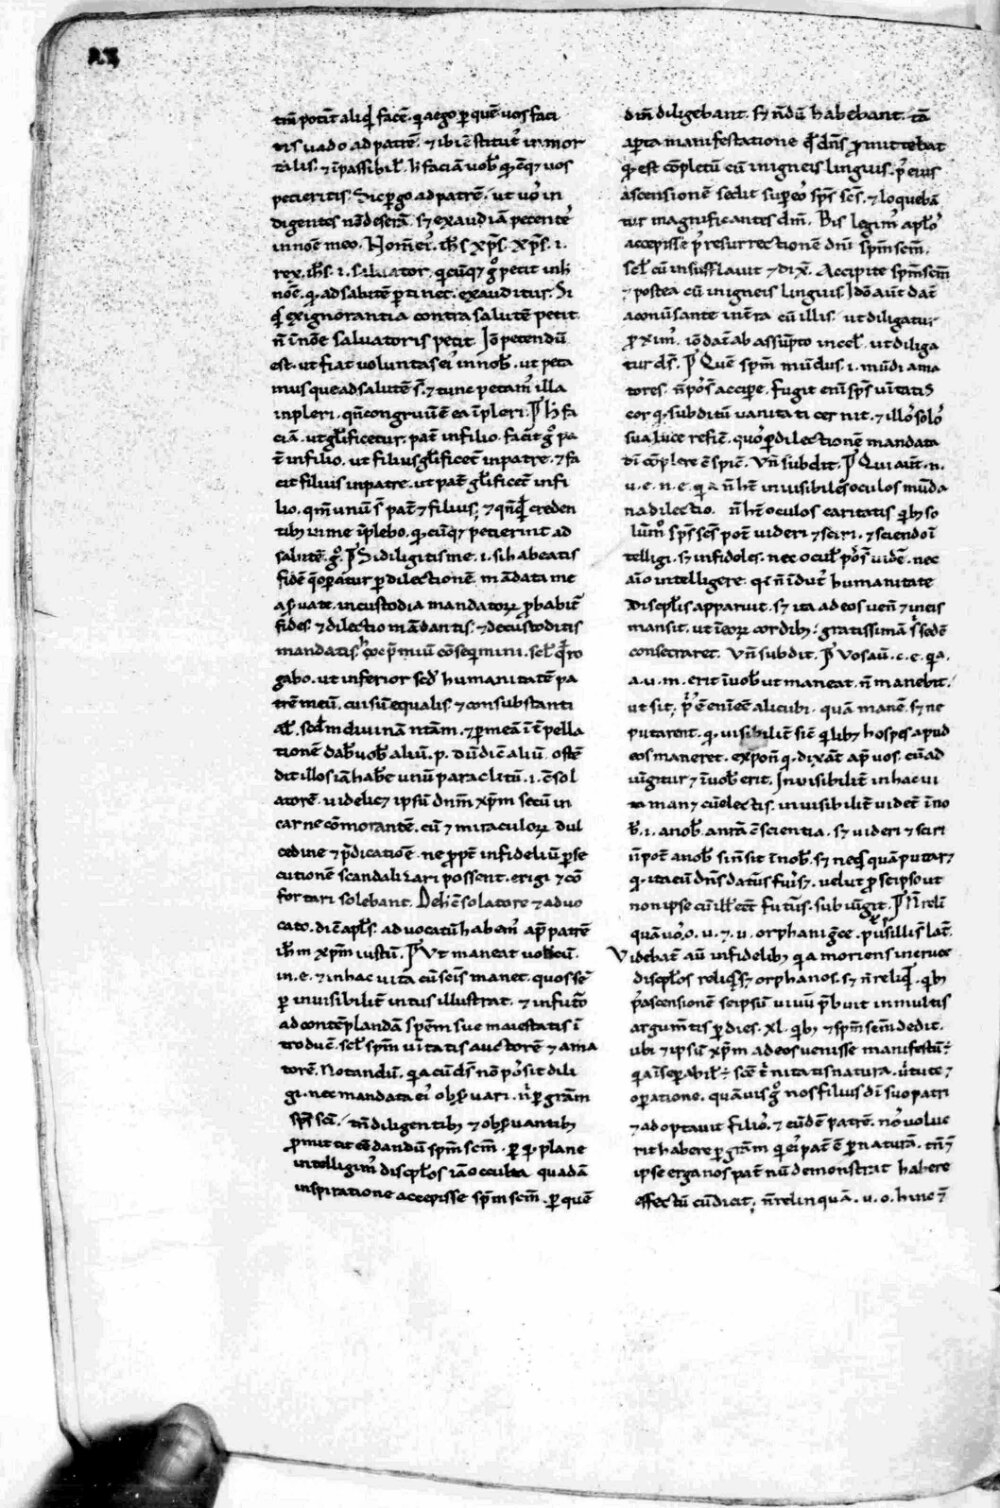 tm̄ potin̄t aliq̄d facē. q̓a ego p quē uos faci
tis uado ad patrē. ⁊ ibi ē stitut᷑ inmor
talis. ⁊ īpassibil̓. h̓ faciā uob̓. q̓ ēq; uos
petieritis. Sic pgo ad patrē. ut uo᷒ in
digentes nō deserā. s; exaudiā petente᷒
in noē meo. Nom̄ ei᷒. ih̄s xp̄s. xp̄s. i.
rex. ih̄s. i. saluator. q̓cūq; g̊ petit in h̓
noē. q̓. ad salutē ptinet. exauditur. Si
q̓s ex ignorantia contra salutē petit.
n̄ ī noē saluatoris petit. Iō petendū
est. ut fiat uoluntas ei᷒ in nob̓. ut peta
mus que ad salutē s̄. ⁊ tunc petam᷒ illa
inpleri. qn̄ congruū ē ea īpleri. ꝑ h̓ fa
ciā. ut gl̓ificetur. pat̄ in filio. facit g̊ pa
t̄ in filio. ut filius gl̓ificet᷑ in patre. ⁊ fa
cit filius in patre. ut pat̄ gl̓ificet᷑ in fi
lio. qm̄ unū s̄ pat̄ ⁊ filius. ⁊ creden
tib; in me īplebo. q̓. cūq; petierint ad
salutē. g̊. ꝑ Si diligitis me. i. si habeatis
fidē q̄ opatur p dilectionē. mādata me
a s̓uate. in custodia mandatoꝝ p̱babit᷑
fides. ⁊ dilectio mādantis. ⁊ de custoditis
mandatis. hoc p̄miū cōseq̓mini. scl̓. q̄ ro
gabo. ut inferior scd̄ humanitatē pa
trē meū. cui sū equalis ⁊ consubstanti
al̓. scd̄m diuinā nt̄am. ⁊ p meā īt̄pella
tionē dab̓ uob̓ aliū. p. dū dīc aliū. ostē
dit illos iā hab̄e unū paraclitū. i. ēsol
atorē. uidelic; ipsū dn̄m xp̄m secū in
carne cōmorantē. cū ⁊ miraculoꝝ dul
cedine ⁊ p̄dicatiōe. ne pp̄t infideliū pse
cutionē scandalizari possent. erigi ⁊ cō
fortari solebant. De h̓ ēsolatore ⁊ aduo
cato. dīc apl̓s. aduocatū habem᷒ ap̄ patrē
ih̄m xp̄m iustū. ꝑ Ut maneat uobiscū.
in. e. ⁊ in hac uita cū scīs manet. quos sē
p inuisibilit̄ intus illustrat. ⁊ in futō
ad contēplandā spēm sue maiestatis ī
troducē. scl̓. spm̄ uītatis auctorē ⁊ ama
torē. Notandū. q̓a cū ds̄ nō pos̓sit dili
gi. nec mandata ei᷒ obs̓uari. n̓ p gr̄am
sps̄ scī. tn̄ diligentib; ⁊ obs̓uantib;
p̱mittit eē dandū spm̄ scm̄. p q̓. plane
intelligim᷒ discipl̓os iā occulta quadā
inspiratione accepisse spm̄ scm̄. p quē
dm̄ diligebant. s; n̄dū habebant. tā
apta manifestatione q̄ dn̄s p̱mittebat
q̓ est cōpletū cū in igneis linguis. p᷒ eius
ascensionē sedit sup eo᷒ sps̄ scs̄. ⁊ loqueba
tur magnificantes dm̄. Bis legim᷒ aplo᷒
accepisse p᷒ resurrectionē dn̄i spm̄ scm̄.
scl̓. cū insufflauit ⁊ dix̄. Accipite spm̄ scm̄
⁊ postea cū in igneis linguis. Idō aūt dat᷑
a conūsante in t̄ra cū illis. ut diligatur
p̱xim᷒. iō dat᷑ ab assūpto in cel̓. ut diliga
tur ds̄. ꝑ Quē spm̄ mūdus. i. mūdi ama
tores. n̄ pos̄t accipe. fugit enī sps̄ uītatis
cor q̓. subditū uanitati cernit. ⁊ illo᷒ solo᷒
sua luce refic̄. quo᷒ p dilectionē mandata
dī cōplere ēspic̄. Un̄ subdit. ꝑ Qui aūt. n.
u. e. n. e. q̓a n̄ h̄t inuisibiles oculos mūda
na dilectio. n̄ h̄t oculos caritatis q̓b; so
lūm᷒ sps̄ scs̄ pot̄ uideri ⁊ sciri. ⁊ sciendo ī
telligi. s; infideles. nec ocul̓ pos̄t uidē. nec
aīo intelligere. q̓a n̄ īdut᷒ humanitate
discipl̓is apparuit. s; ita ad eos uen̄ ⁊ in eis
mansit. ut ī eoꝝ cordib; gratissimā s̄ sedē
consecraret. Un̄ subdit. ꝑ Vos aū. c. e. q̓a.
a. u. m. erit ī uob̓. ut maneat. n̄ manebit.
ut sit. p᷒ ē enī ēē alicubi. quā manē. s; ne
putarent. q̓. uisibilit̄ sic̄ q̓lib; hospes apud
eos maneret. exponit q̓. dixāt ap̄ uos. cū ad
iūgitur ⁊ ī uob̓ erit. Inuisibilit̄ in hac ui
ta man; cū electis. inuisibilit̄ uidet᷑ ī no
b̓. i. a nob̓. a nr̄a ēscientia. s; uideri ⁊ sciri
n̄ pot̄ a nob̓ si n̄ sit ī nob̓. s; nec quā putar;
q̓. ita cū dn̄s datus fuis;. uelut p se ipso ut
non ipse cū ill̓ eēt futur᷒. subiūgit. ꝑ Nō reli
quā uo᷒. o. u. ⁊. u. orphani g̓ce. pusillis lat̄.
Videbat᷑ aū infidelib; q̓a moriens in cruce
discipl̓os reliq̓s; orphanos. s; n̄ reliq̓. q̓b;
p᷒ ascensionē se ipsū uiuū p̄buit in multis
argum̄tis p dies. xl. q̓b; ⁊ spm̄ scm̄ dedit.
ubi ⁊ ipsū xp̄m ad eos uenisse manifestū ÷
q̓a īsepabil̓ ÷ scē t̓nitatis natura. ūtute ⁊
operatione. quāuis g̊ nos filius dī suo patri
⁊ adoptauit filio᷒. ⁊ eūdē patrē. no᷒ uolue
rit habere p gr̄am q̓ ei᷒ pat̄ ē p naturā. tn̄ ⁊
ipse erga nos pat̄nū demonstrat habere
effectū cū dicit. n̄ relinquā. u. o. hinc ē